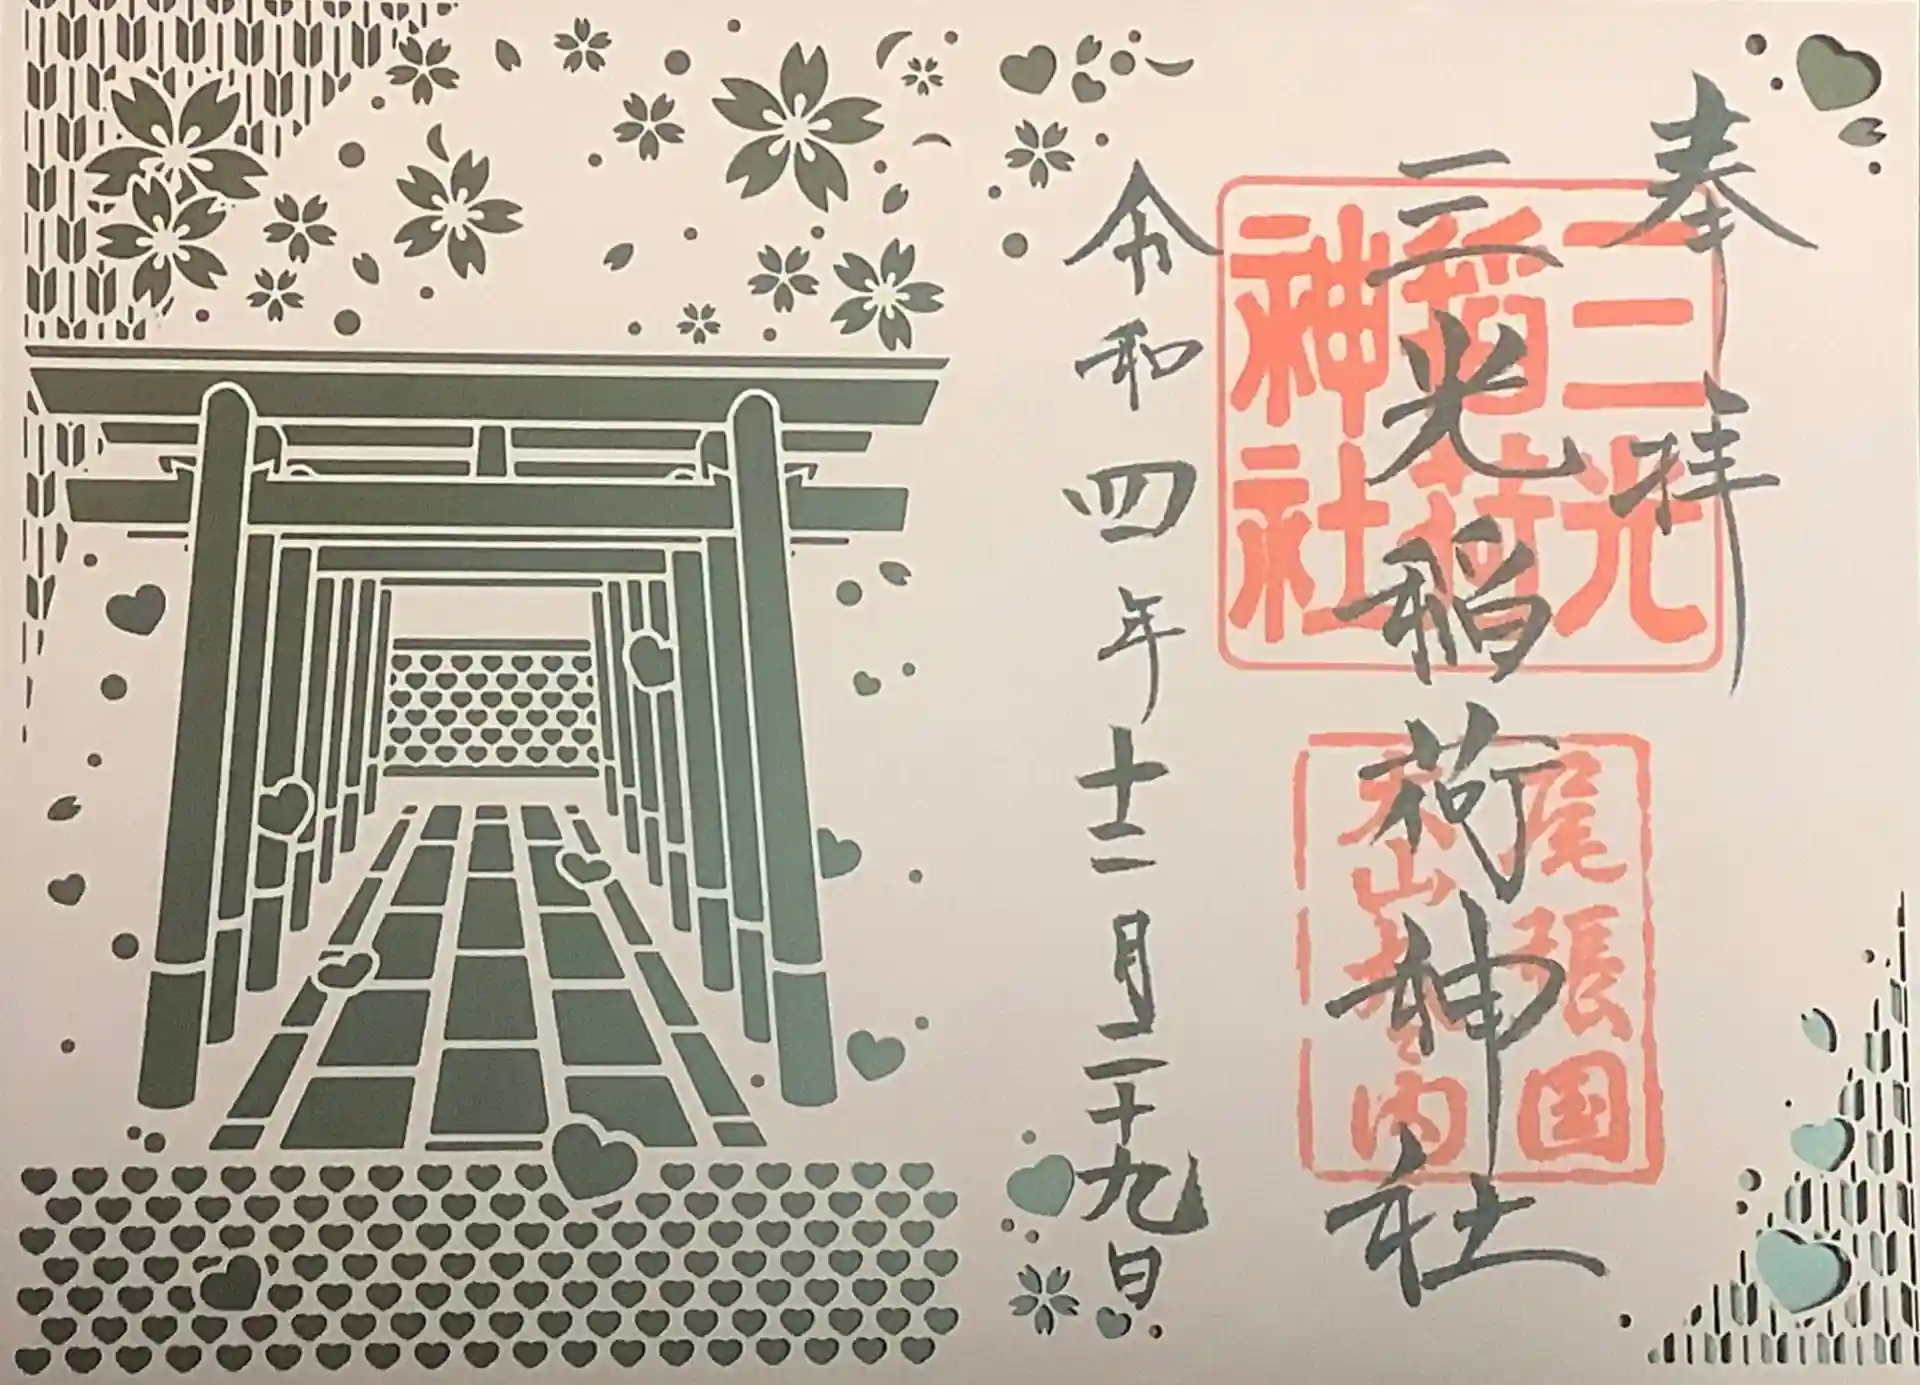 奉拝
三光稲荷神社
三光
稲荷
神社
尾張国
犬山 内
令和四年十二月二十九日